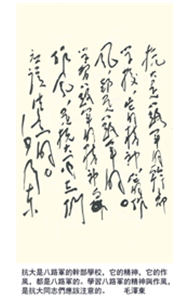 抗大是八路軍的幹部
学校，它的精神，它的作
風，都是八路軍的。
学習八路軍的精神与
作風，是抗大同志們
應該注意的。
毛澤東
抗大是八路軍的幹部學校，它的精神，它的作
風，都是八路軍的。學習八路軍的精神與作風，
是抗大同志們應該注意的。 毛澤東